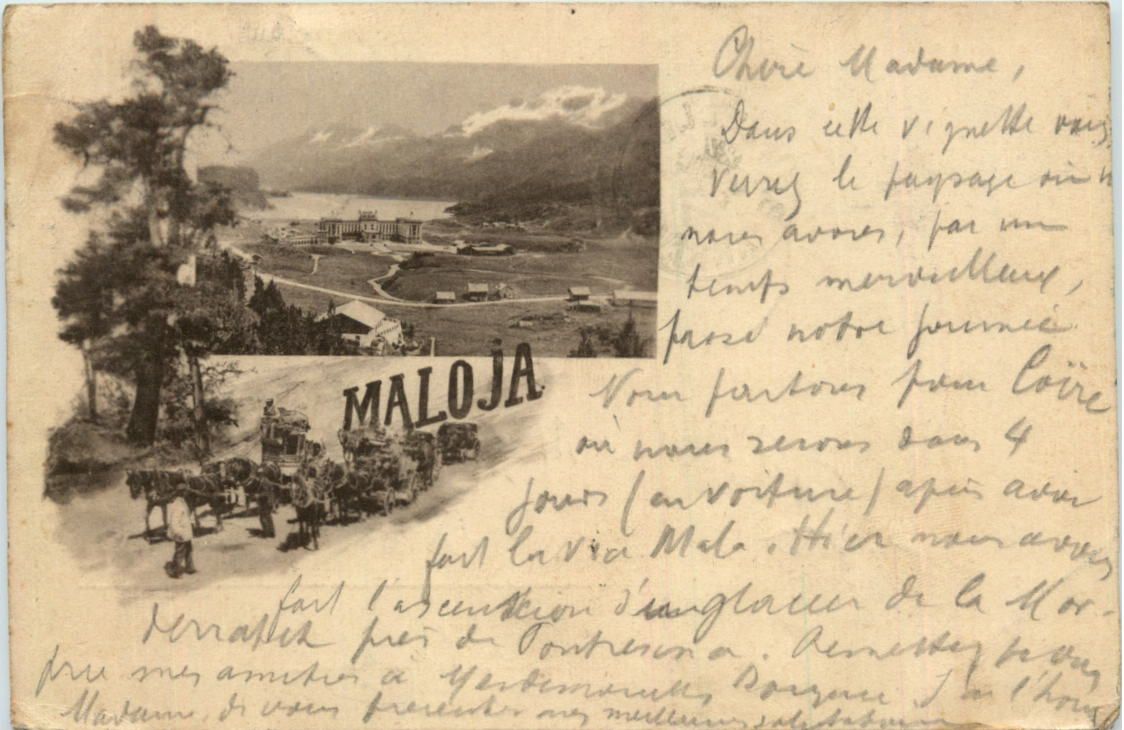 MALOJA.
Chère Madame,
Dans cette vignette vous
verrez le paysage où n
nous avons, par un
temps merveilleux,
passé notre journée
Nous partons pour Coïre
où nous serons dans 4
jours (en voiture) après avoir
fait la Via Mala. Hier nous avons
fait l'ascension d'un glacier de la Mor-
terratsch près de Pontresina. Remettez je vous
prie mes amitiés à Mesdemoiselles J'ai l'hon
Madame, de vous présenter mes meilleures salutations